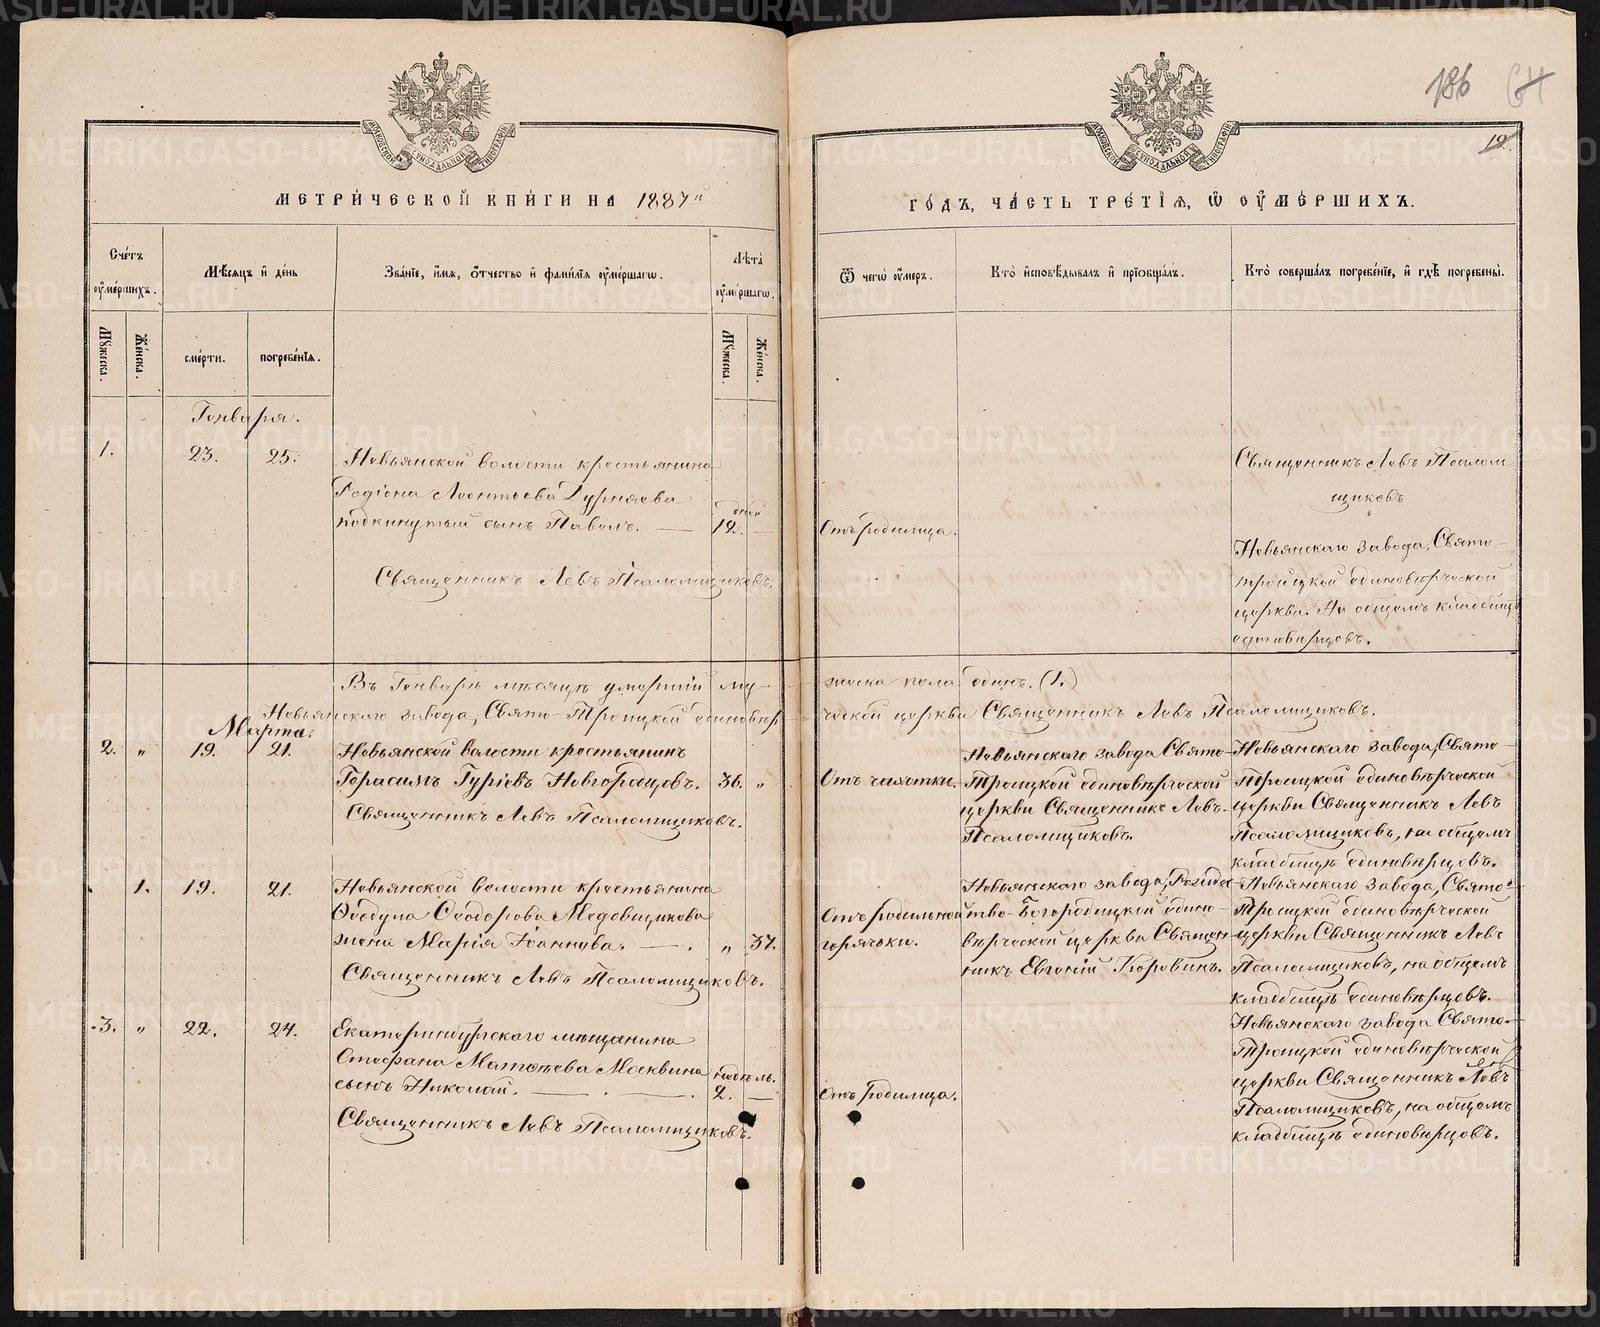 186
19
МОСКОВСКОЙ СУНОДАЛЬНОЙ ТИПОГРАФІИ
МОСКОВСКОЙ СУНОДАЛЬНОЙ ТИПОГРАФІИ
МЕТРИЧЕСКОЙ КНИГИ НА 1887й
ГОДЪ, ЧАСТЬ ТРЕТІѦ, Ѿ ОУМЕРШИХЪ.
Счетъ оумершихъ.
Мѣсяцъ и день
Званіе, имя, отчество и фамиліѧ оумершагѡ.
Лѣта оумершагѡ.
Ѿ чегѡ оумеръ.
Кто исповѣдывалъ и прїобщалъ.
Кто совершалъ погребенїе, и гдѣ погребены.
Мужеска.
Женска.
смерти.
погребенїѧ.
Мужеска.
Женска.
Генваря.
1. 23. 25. Невьянской волости крестьянина
Родіона Леонтьева Дурняева
подкинутый сынъ Павелъ. — дней 12. —
Священникъ Левъ Псаломщиковъ.
Отъ родимца.
Священникъ Левъ Псалом-
щиковъ
Невьянскаго завода, Свято-
Троицкой единовѣрческой
церкви. На общемъ кладбищѣ
единовѣрцовъ.
Въ Генварѣ мѣсяцѣ умершій му-жеска пола одинъ. (1.)
Невьянскаго завода, Свято-Троицкой единовѣр-ческой церкви Священникъ Левъ Псаломщиковъ.
Марта.
2. „ 19. 21. Невьянской волости крестьянинъ
Герасимъ Гуріевъ Новгородцовъ. 36. „
Священникъ Левъ Псаломщиковъ.
Отъ чахотки.
Невьянскаго завода Свято-
Троицкой единовѣрческой
церкви Священникъ Левъ
Псаломщиковъ.
Невьянскаго завода, Свято-
Троицкой единовѣрческой
церкви Священникъ Левъ
Псаломщиковъ, на общемъ
кладбищѣ единовѣрцовъ.
1. 19. 21. Невьянской волости крестьянина
Ѳеодула Ѳеодорова Медовщикова
жена Марія Іоаннова. — . „ 37.
Священникъ Левъ Псаломщиковъ.
Отъ родильной
горячки.
Невьянскаго завода, Рождес-
тво-Богородицкой едино-
вѣрческой церкви Священ-
никъ Евгеній Коровинъ.
Невьянскаго завода, Свято-
Троицкой единовѣрческой
церкви Священникъ Левъ
Псаломщиковъ, на общемъ
кладбищѣ единовѣрцовъ.
3. „ 22. 24. Екатеринбургского мѣщанина
Стефана Матѳеева Москвина
сынъ Николай. — . — . недѣль. 2. —
Священникъ Левъ Псаломщиковъ.
Отъ родимца.
Невьянскаго завода Свято-
Троицкой единовѣрческой
церкви Священникъ Левъ
Псаломщиковъ, на общемъ
кладбищѣ единовѣрцовъ.
METRIKI.GASO-URAL.RU